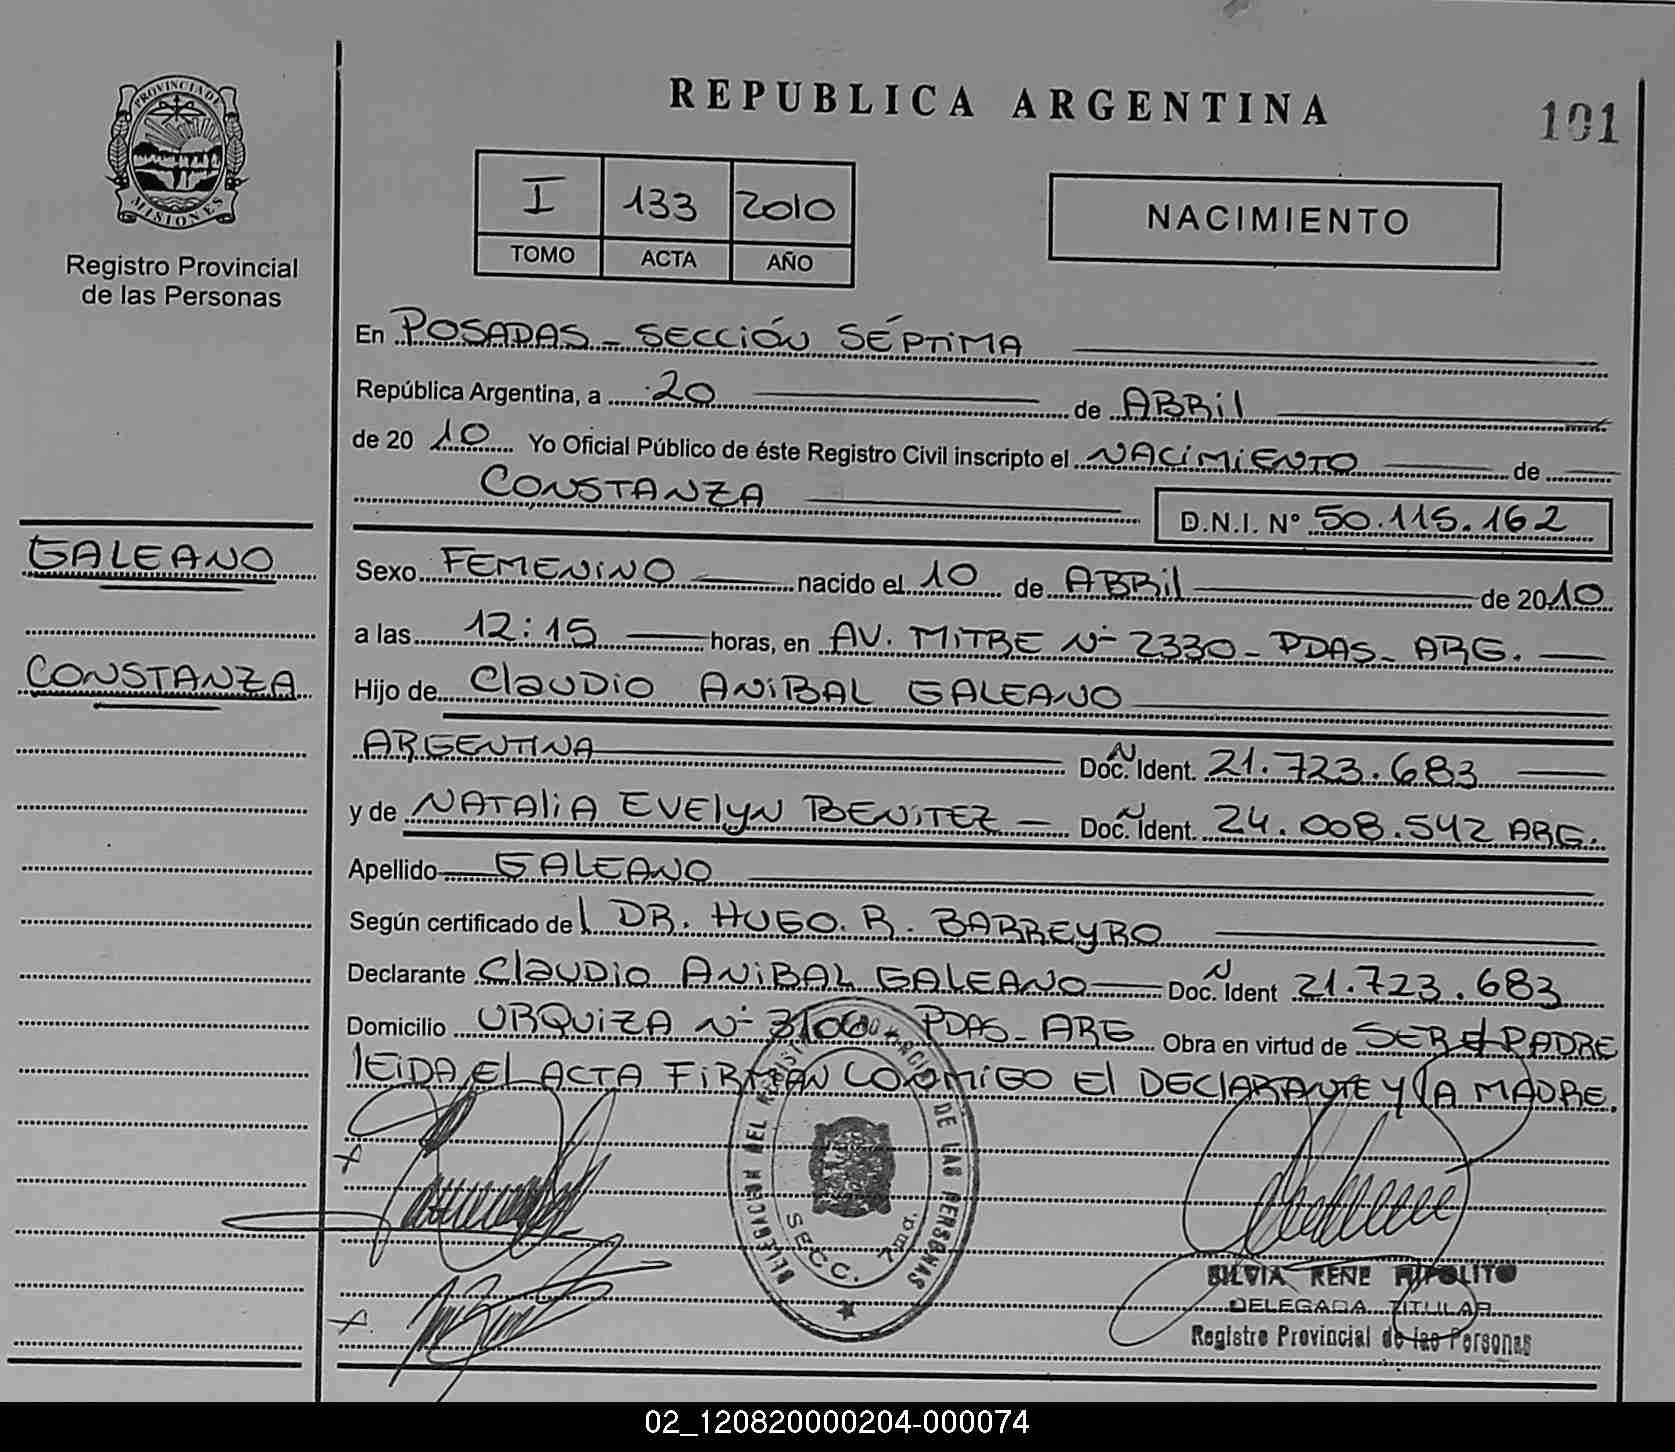 REPUBLICA ARGENTINA
101
PROVINCIA DE
MISIONES
Registro Provincial
de las Personas
I 133 2010
TOMO ACTA AÑO
NACIMIENTO
En POSADAS - SECCIÓN SÉPTIMA
República Argentina, a 20 de ABRIL
de 20 10 Yo Oficial Público de éste Registro Civil inscripto el NACIMIENTO de
CONSTANZA
D.N.I. Nº 50.115.162
GALEANO
CONSTANZA
Sexo FEMENINO nacido el 10 de ABRIL de 2010
a las 12:15 horas, en AV. MITRE Nº 2330 - PDAS - ARG.
Hijo de Claudio ANIBAL GALEANO
ARGENTINA Doc. N Ident. 21.723.683
y de NATALIA EVELYN BENITEZ Doc. N Ident. 24.008.542 ARG.
Apellido GALEANO
Según certificado del DR. HUGO. R. BARREYRO
Declarante Claudio ANIBAL GALEANO Doc. N Ident 21.723.683
Domicilio URQUIZA Nº PDAS - ARG Obra en virtud de SER el PADRE
LEIDA EL ACTA FIRMAN CONMIGO El DECLARANTE Y LA MADRE.
DELEGACION DEL REGISTRO PROVINCIAL DE LAS PERSONAS
SECC. 7ma.
SILVIA RENE HIPOLITO
DELEGADA TITULAR
Registro Provincial de las Personas
02_120820000204-000074